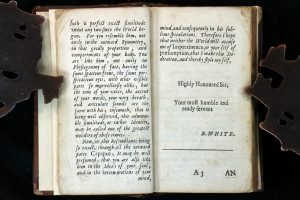 such a perfect exact similitude
'twixt any two since the World be-
gan. For you resemble him, not
only in the outward Symmetry,
in this goodly proportion, and
comportments of your body. You
are like him, not only in
Physiognomy of face, having the
same spacious front, the same per-
spicacious eyes, and other visible
parts so marvellously alike, but
the tone of your voice, the accent
of your words, your very breath
and articulate sounds are the
same with his; insomuch, that
being well observed, this admira-
ble similitude, or rather identity,
may be called one of the greatest
wonders of these times.
Now, Sir, this Resemblance being
so exact, through all the outward
parts, it may be well
presumed, that you are also like
him in the Idæa's of your soul,
and in the interiorities of your
mind,
mind, and consequently in his sub-
lime speculations. Therefore I hope
that neither the World will accuse
me of Impertinence, or your self of
Presumption, that I make this De-
dication, and thereby style my self,
Highly Honoured Sir,
Your most humble and
ready servant
R. WHITE.
A 3
AN